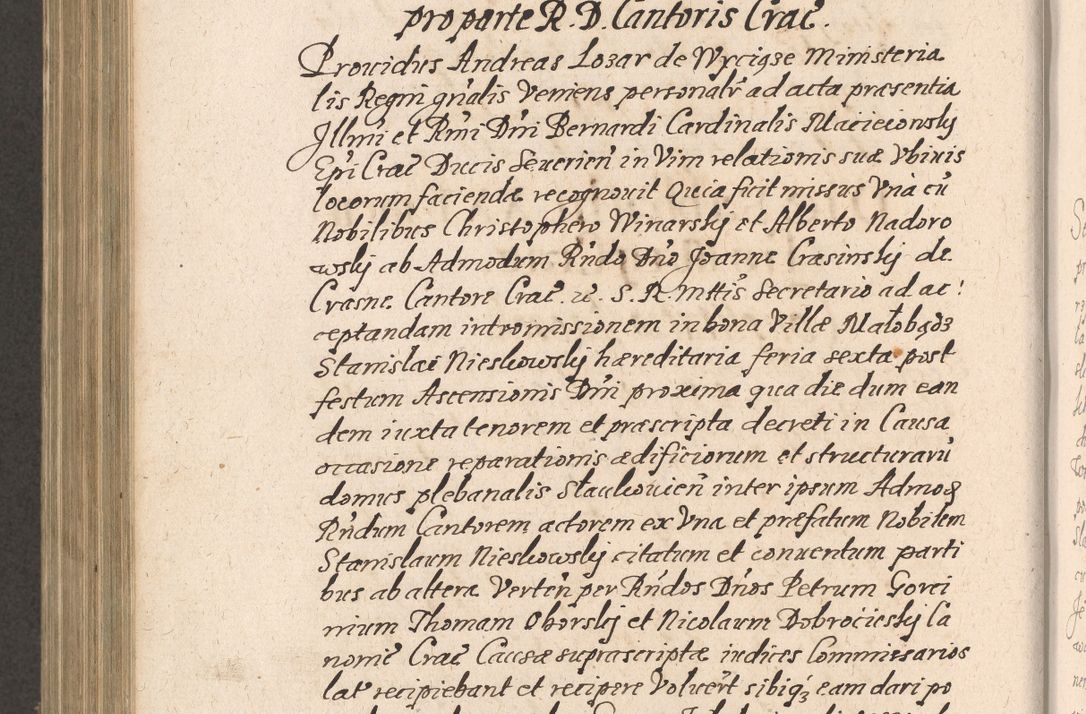 pro parte R. D. Cantoris Crac̃.
Prouidus Andreas Lozar de Wyciąze Ministeria
lis Regni gñalis Veniens personalr̃ ad acta præsentia
Jllmi et Rmi Dñi Bernardi Cardinalis Macieiowsky
Epi Crac̃ Ducis Seuerieñ in Vim relationis suæ Vbiuis
locorum faciendæ recognouit Quia fuit missus Vnà cũ
Nobilibus Christophero Winarskj et Alberto Nadoro
wskj ab Admodum Rñdo Dño Joanne Crasinskj de
Crasne Cantore Crac̃. et. S. R. Mttis Secretario ad ac
ceptandam intromissionem in bona Villæ Małobądz
Stanislai Nieskowskj hæreditaria feria sexta post
festum Ascensionis Dñi proxima qua die dum ean
dem iuxta tenorem et præscripta decreti in Causa
occasione reparationis ædificiorum et structurarũ
domus plebanalis Slawkouieñ inter ipsum Admod
Rñdum Cantorem actorem ex Vna et præfatum Nobilem
Stanislaum Nieskowskj citatum et conuentum parti
bus ab altera Verteñ per Rñdos Dños Petrum Gorci
nium Thomam Oborskj et Nicolaum Dobrocieskj Ca
nonic̃ Crac̃ Causæ suprascriptæ iudices Commissarios
lat̃ recipiebant et recipere Voluer̃t sibiq́3 eam dari po